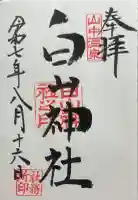 奉拝
山中温泉
白山神社
令和七年八月十六日